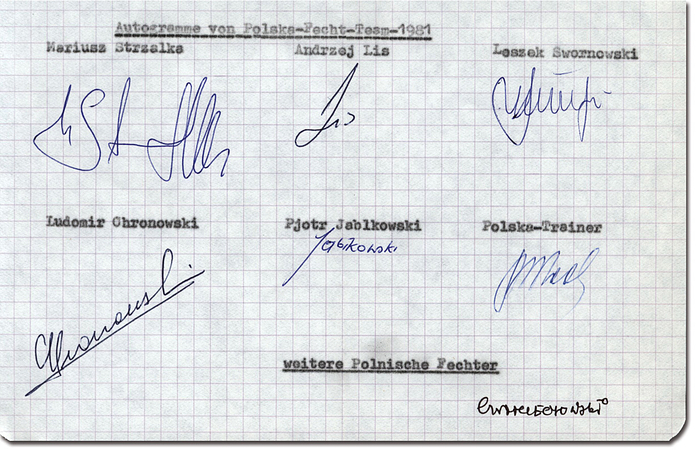 Autogramme von Polska-Fecht-Team-1981
Mariusz Strzalka Andrzej Lis Leszek Swornowski
Lis
Ludomir Chronowski Pjotr Jablkowski Polska-Trainer
Jabłkowski
Chronowski
weitere Polnische Fechter